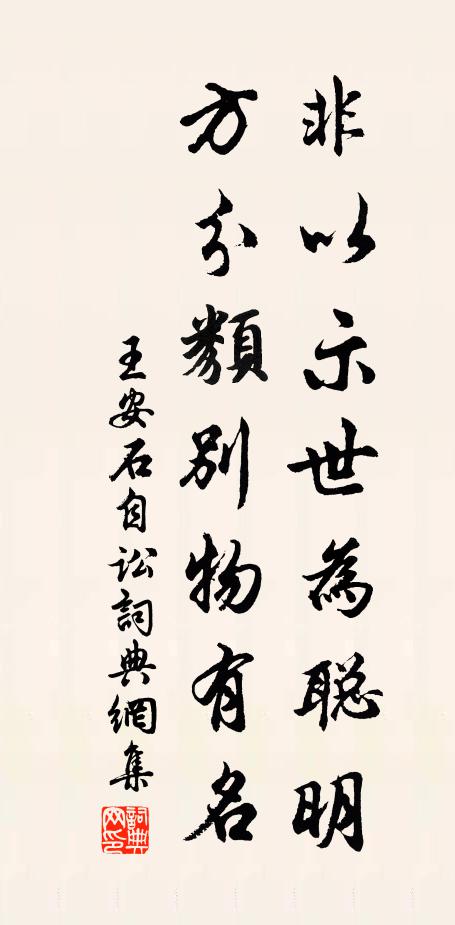 非以示世為聰明
方分類別物有名
王安石自訟詞典網集
詞典
网印